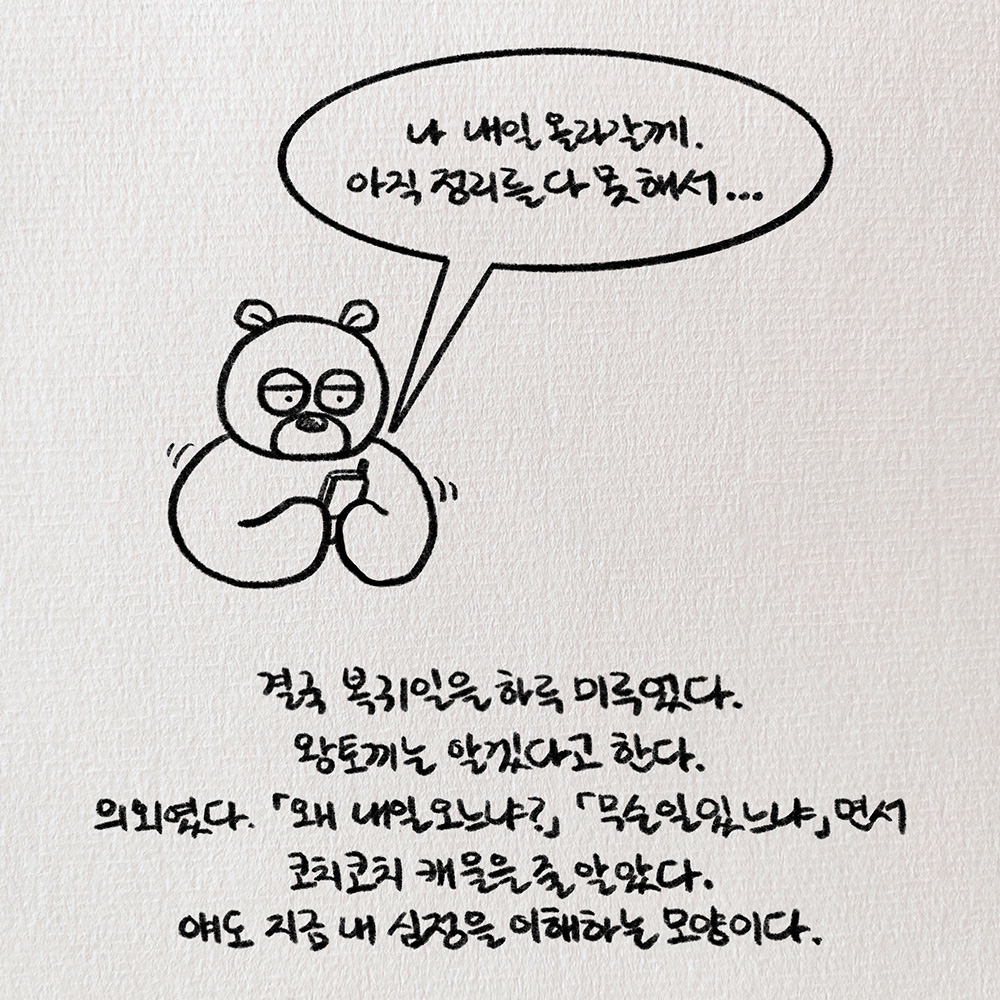 나 내일 올라갈께.
아직 정리를 다 못 해서...
결국 복귀일을 하루 미루었다.
왕토끼는 알겠다고 한다.
의외였다. 「왜 내일 오느냐?」 「무슨 일 있느냐」면서
코치코치 캐물을 줄 알았다.
얘도 지금 내 심정을 이해하는 모양이다.